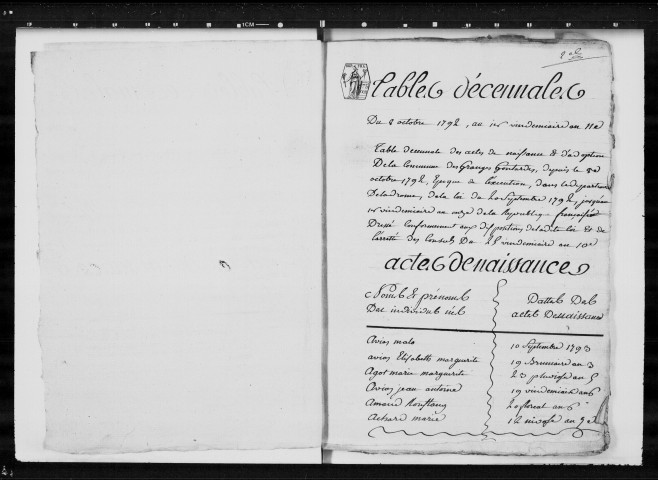 Tables décennales
Du 8 octobre 1792, au 1er vindemiaire an 11e
Table decennale des actes de naissance & d'adoption
De la Commune des Granges Gontardes, depuis le 8e
octobre 1792, Epoque de l'execution, dans le departement
De la drome, de la loi du 20 Septembre 1792, jusqu'au
1er vindemiaire an onze de la Republique française
Dressé Conformement aux dispositions de la dite loi et de
l'arrêté des Consuls Du 25 vindemiaire an 10e
actes de naissances
Noms & prénoms Dattes Des
Des individus nés actes De naissance
Avias malo 10 Septembre 1793
avias Elisabeth margueritte 19 Brumaire an 3
Agot marie margueritte 23 pluviose an 5
Avias jean antoine 19 vindemiaire an 6
Amand 20 floreal an 6
Achard marie 12 nivose an 9e
1CM